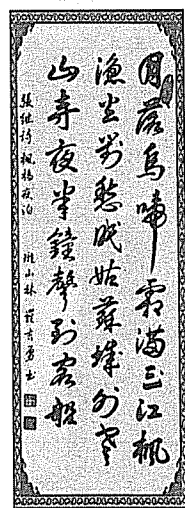 月落烏啼霜滿天江楓
漁火對愁眠姑蘇城外寒
山寺夜半鐘聲到客船
張继诗楓橋夜泊 山林 书